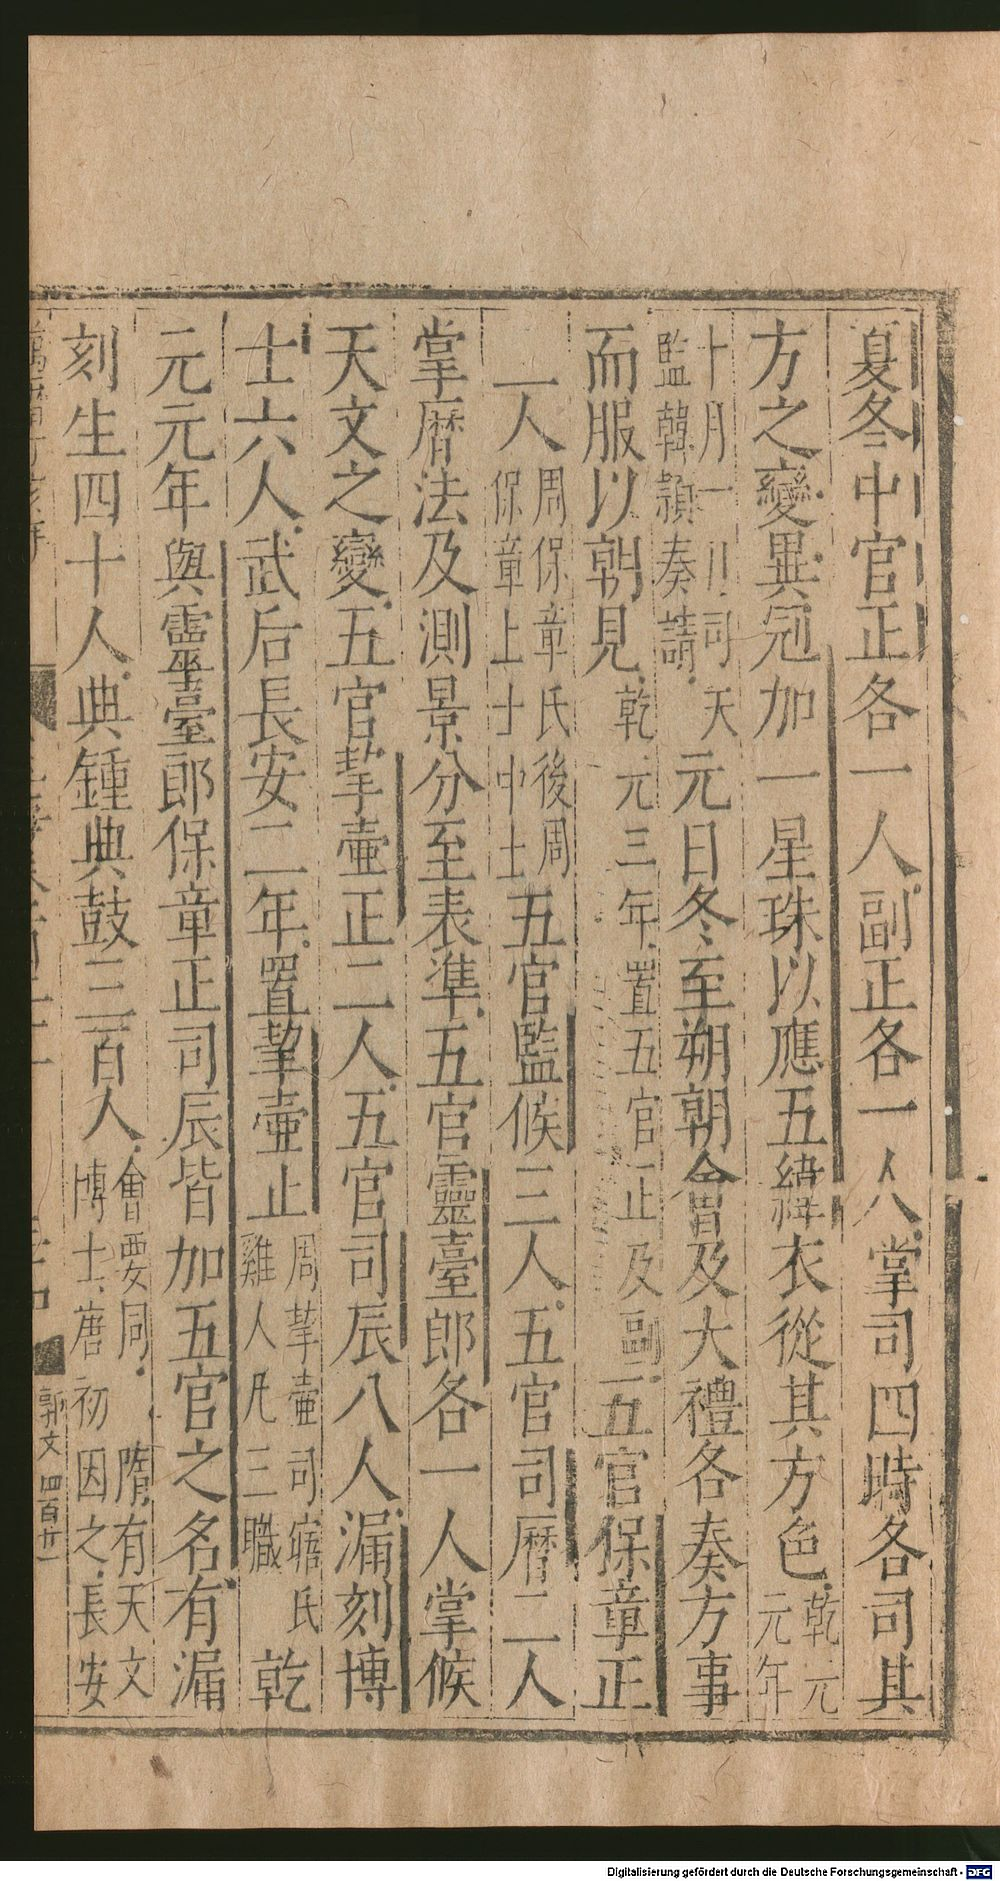 夏冬中官正各一人副正各一人掌司四時各司其
方之變異冠加一星珠以應五緯衣從其方色乾元元年
十月司天監韓頴奏請元日冬至朔朝會及大禮各奏方事
而服以朝見乾元三年置五官正及副五官保章正
一人周保章氏後周保章上士中士五官監候三人五官司曆二人
掌曆法及測景分至表準五官靈臺郎各一人掌候
天文之變五官挈壷正二人五官司辰八人漏刻博
士六人武后長安二年置挈壷正周挈壷司寤氏雞人凡三職乾
元元年與靈臺郎保章正司辰皆加五官之名有漏
刻生四十人典鍾典鼓三百人會要同隋有天文博士唐初因之長安
郭文 四百廿一
Digitalisierung gefördert durch die Deutsche Forschungsgemeinschaft - DFG